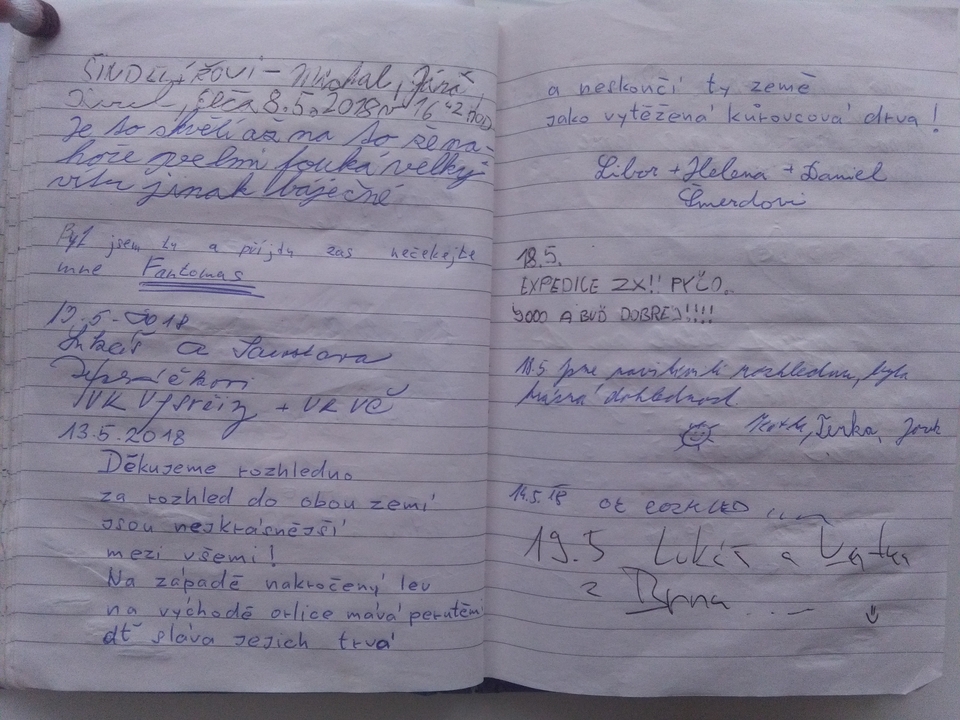 ŠINDELÁŘOVI - Michal, Jára,
8.5.2018 v 16:42 HOD
Je to skvělí až na to že na-
hoře velmi fouká velký
vítr jinak báječné
Byl jsem tu a příjdu zas nečekejte
mne Fantomas
13.5.2018
Lukáš a Jaroslava
+ VK VČ
13.5.2018
Děkujeme rozhledno
za rozhled do obou zemí
jsou nejkrásnější
mezi všemi!
Na západě nakročený lev
na východě orlice mává perutěm
dť sláva jejich trvá
a neskončí ty země
jako vytěžená kůrovcová drva!
Libor + Helena + Daniel
Šmerdovi
18.5.
EXPEDICE ZX!! PYČO.
9000 A BUĎ DOBREJ!!!!
18.5 jsme navštívili rozhlednu, byla
krásná dohlednost.
Terka,
19.5.18 OK ROZHLED
19.5 Lukáš a
z Brna ....